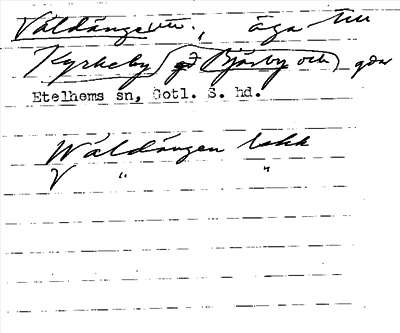 Väldängen, äga till
Kyrkeby (gd Bjärby och) gdar
Etelhems sn, Gotl. S. hd.
Wäldängen Lokk
V " "